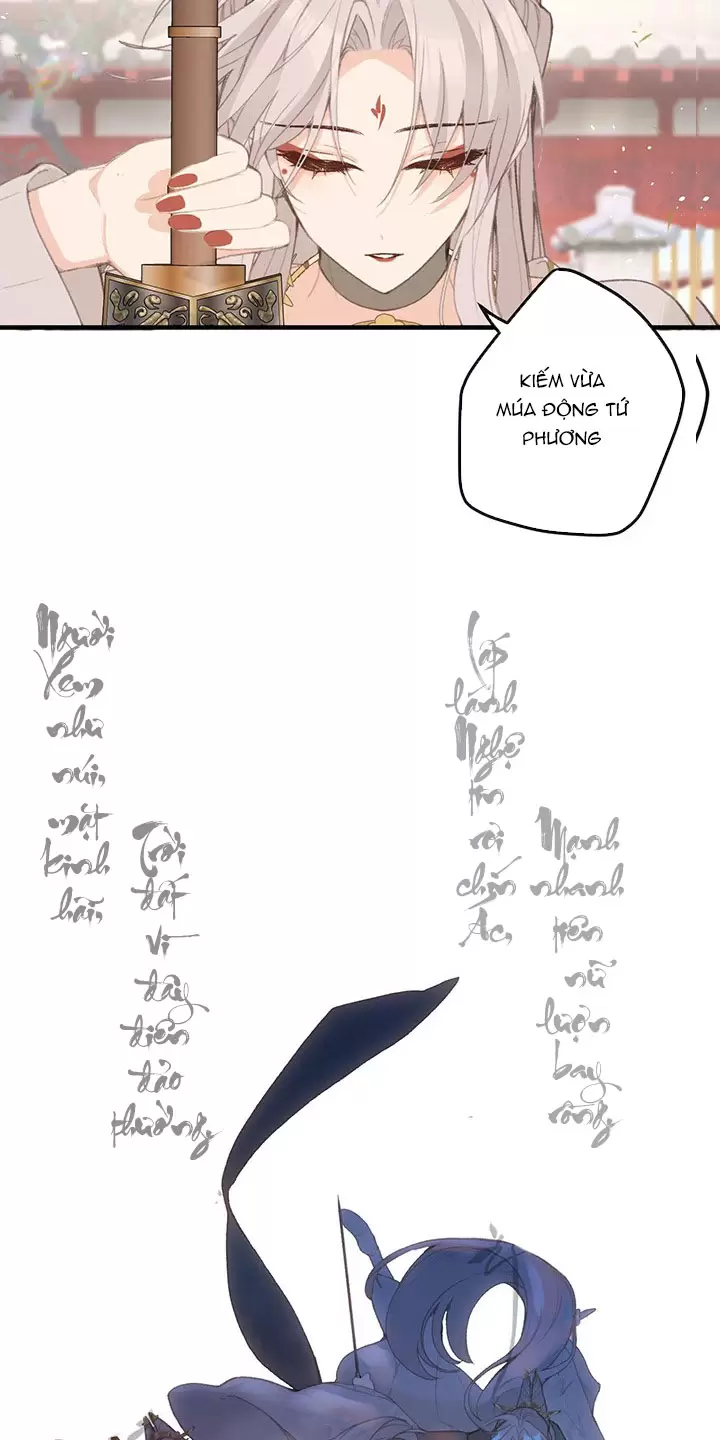 KIẾM VỪA
MÚA ĐỘNG TỨ
PHƯƠNG
Người
Xem
như
núi,
mặt
kinh
hãi,
Trời
đất
vì
đây
điên
đảo
thường,
Lấp
lánh
Nghệ
rơi
chín
Ác,
Mạnh
nhanh
tiên
nữ
lượn
bay
rồng,